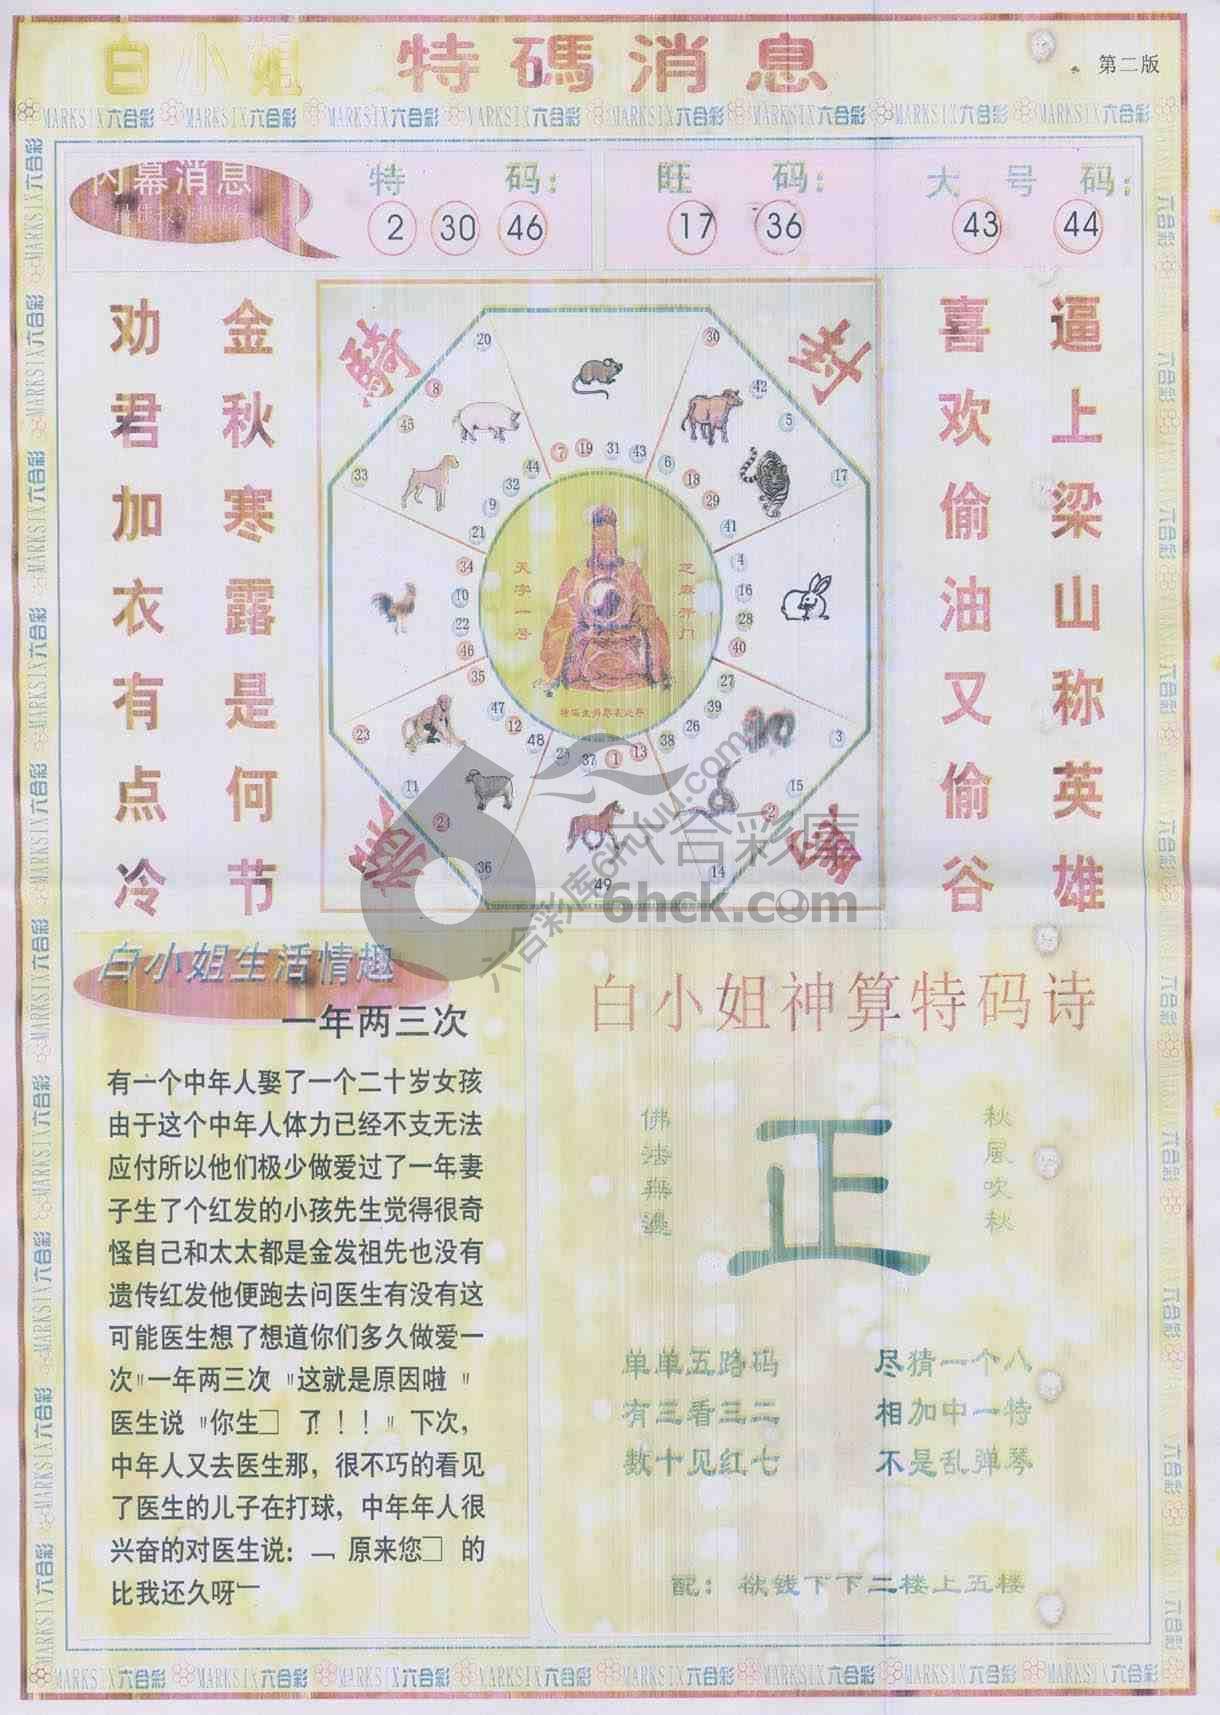 白小姐 特碼消息
第二版
MARKSIX六合彩 MARKSIX六合彩 MARKSIX六合彩 MARKSIX六合彩 MARKSIX六合彩 MARKSIX六合彩 MARKSIX六合彩 MARKSIX六合彩
内幕消息
特码：
2 30 46
旺码：
17 36
大号码：
43 44
逼上梁山称英雄
喜欢偷油又偷谷
金秋寒露是何节
劝君加衣有点冷
20 30
8 42
45 5
33 17
7 19 31 43
44 6
32 18
9 29
21 41
34 4
10 16
22 28
46 40
35 27
47 39
12 26
48 38
25 37 1 13
23 3
11 15
24 2
36 14
49
天字一号
芝麻开门
六合彩库
6hck.com
六合彩库6huu.com
白小姐生活情趣
一年两三次
有一个中年人娶了一个二十岁女孩
由于这个中年人体力已经不支无法
应付所以他们极少做爱过了一年妻
子生了个红发的小孩先生觉得很奇
怪自己和太太都是金发祖先也没有
遗传红发他便跑去问医生有没有这
可能医生想了想道你们多久做爱一
次"一年两三次 "这就是原因啦 "
医生说 "你生□ 了！！！" 下次，
中年人又去医生那，很不巧的看见
了医生的儿子在打球，中年年人很
兴奋的对医生说：﹁ 原来您□ 的
比我还久呀﹁
白小姐神算特码诗
佛法無邊
正
秋風吹秋
单单五路码 尽猜一个八
有三看三二 相加中一特
数十见红七 不是乱弹琴
配：欲钱下下二楼上五楼
MARKSIX六合彩 MARKSIX六合彩 MARKSIX六合彩 MARKSIX六合彩 MARKSIX六合彩 MARKSIX六合彩 MARKSIX六合彩 MARKSIX六合彩